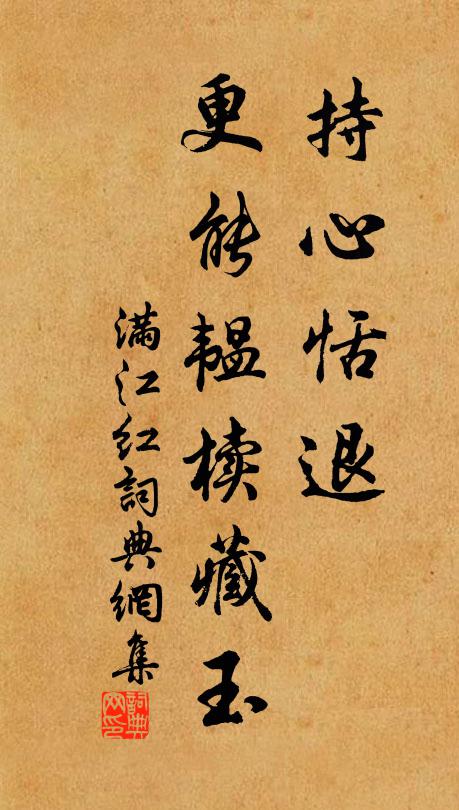 持心恬退
更能韫椟藏玉
满江红詞典網集
詞典
网印